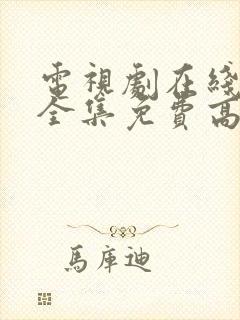 電視劇在綫
全集免費高
馬庫迪